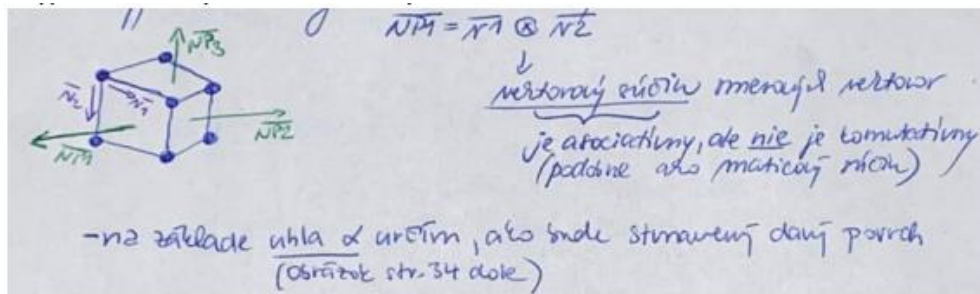 NP1 = N1 ⊗ N2
NP3
N2
N1
NP2
NP1
vektorový súčin smerových vektorov
je asociatívny, ale nie je komutatívny
(podobne ako maticový súčin)
-na základe uhla α určím, ako bude stmavený daný povrch
(obrázok str. 34 dole)